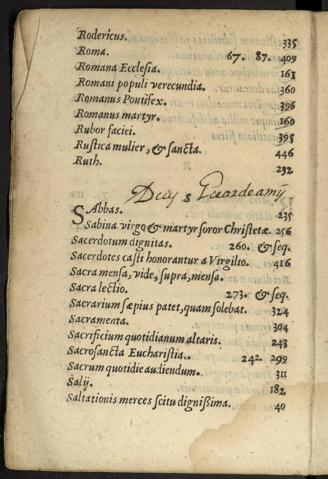 Rodericus. 335
Roma. 67. 87. 409
Romana Ecclesia. 161
Romani populi verecundia. 360
Romanus Pontifex. 396
Romanus martyr. 160
Rubor faciei. 395
Rustica mulier, & sancta. 446
Ruth. 232
S
SAbbas. 235
Sabina virgo & martyr soror Christetæ. 256
Sacerdotum dignitas. 260. & seq.
Sacerdotes casti honorantur a Virgilio. 416
Sacra mensa, vide, supra, mensa.
Sacra lectio. 273. & seq.
Sacrarium sæpius patet, quam solebat. 324
Sacramenta. 304
Sacrificium quotidianum altaris. 243
Sacrosancta Eucharistia. 242. 299
Sacrum quotidie audiendum. 311
Salij. 182
Saltationis merces scitu dignissima. 40